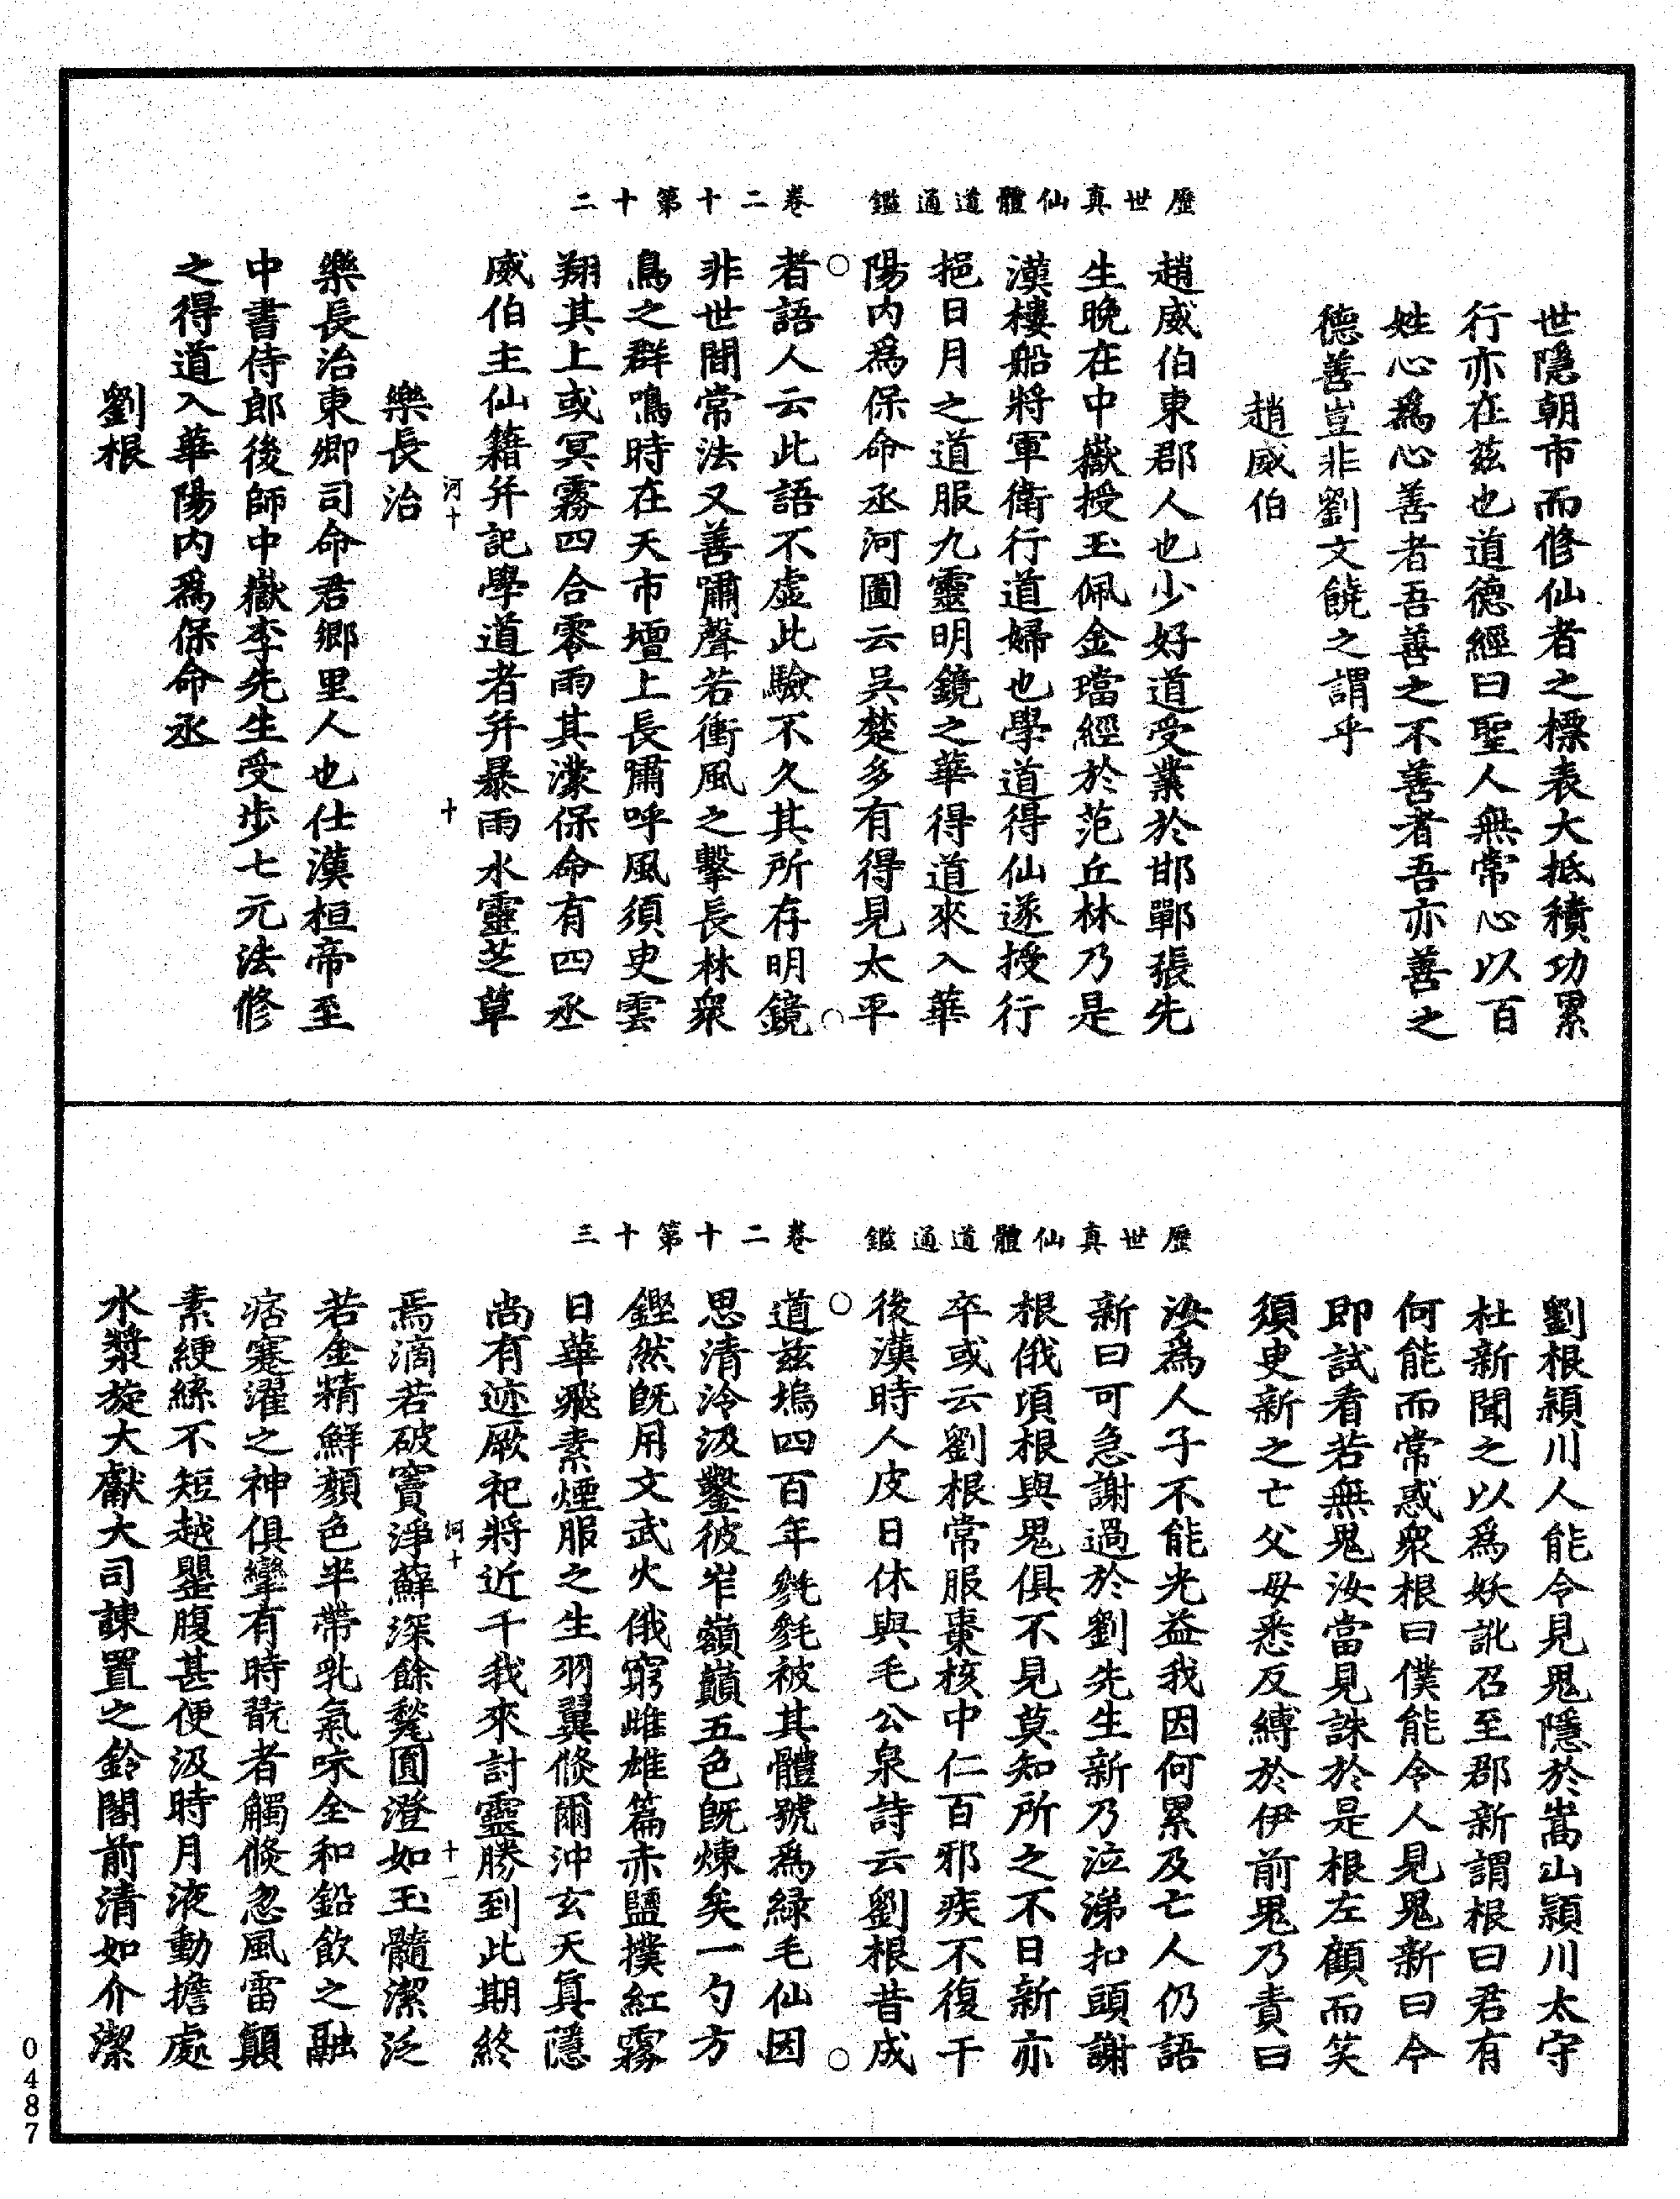 歷世真仙體道通鑑 卷二十第十二
世隱朝市而修仙者之標表大抵積功累
行亦在茲也道德經曰聖人無常心以百
姓心為心善者吾善之不善者吾亦善之
德善豈非劉文饒之謂乎
趙威伯
趙威伯東郡人也少好道受業於邯鄲張先
生晚在中嶽授玉佩金璫經於范丘林乃是
漢樓船將軍衛行道婦也學道得仙遂授行
挹日月之道服九靈明鏡之華得道來入華
陽內為保命丞河圖云吳楚多有得見太平
○
○
者語人云此語不虛此驗不久其所存明鏡
非世間常法又善嘯聲若衝風之擊長林眾
鳥之群鳴時在天市壇上長嘯呼風須臾雲
翔其上或冥霧四合零雨其濛保命有四丞
威伯主仙籍并記學道者并暴雨水靈芝草
河十
十
樂長治
樂長治東卿司命君鄉里人也仕漢桓帝至
中書侍郎後師中嶽李先生受步七元法修
之得道入華陽內為保命丞
劉根
歷世真仙體道通鑑 卷二十第十三
劉根潁川人能令見鬼隱於嵩山潁川太守
杜新聞之以為妖訛召至郡新謂根曰君有
何能而常惑眾根曰僕能令人見鬼新曰今
即試看若無鬼汝當見誅於是根左顧而笑
須臾新之亡父母悉反縛於伊前鬼乃責曰
汝為人子不能光益我因何累及亡人仍語
新曰可急謝過於劉先生新乃泣涕扣頭謝
根俄頃根與鬼俱不見莫知所之不日新亦
卒或云劉根常服棗核中仁百邪疾不復干
後漢時人皮日休與毛公泉詩云劉根昔成
○
○
道茲塢四百年毿毿被其體號為綠毛仙因
思清泠汲鑿彼岝嶺巔五色既煉矣一勺方
鏗然既用文武火俄窮雌雄篇赤鹽撲紅霧
日華飛素煙服之生羽翼倏爾沖玄天真隱
尚有迹厥祀將近千我來討靈勝到此期終
焉滴若破竇淨蘚深餘甃圓澄如玉髓潔泛
河十
十一
若金精鮮顏色半帶乳氣味全和鉛飲之融
痞蹇濯之神俱攣有時翫者觸倏忽風雷顛
素綆絲不短越甖腹甚便汲時月液動擔處
水漿旋大獻大司諫置之鈴閣前清如介潔
0487